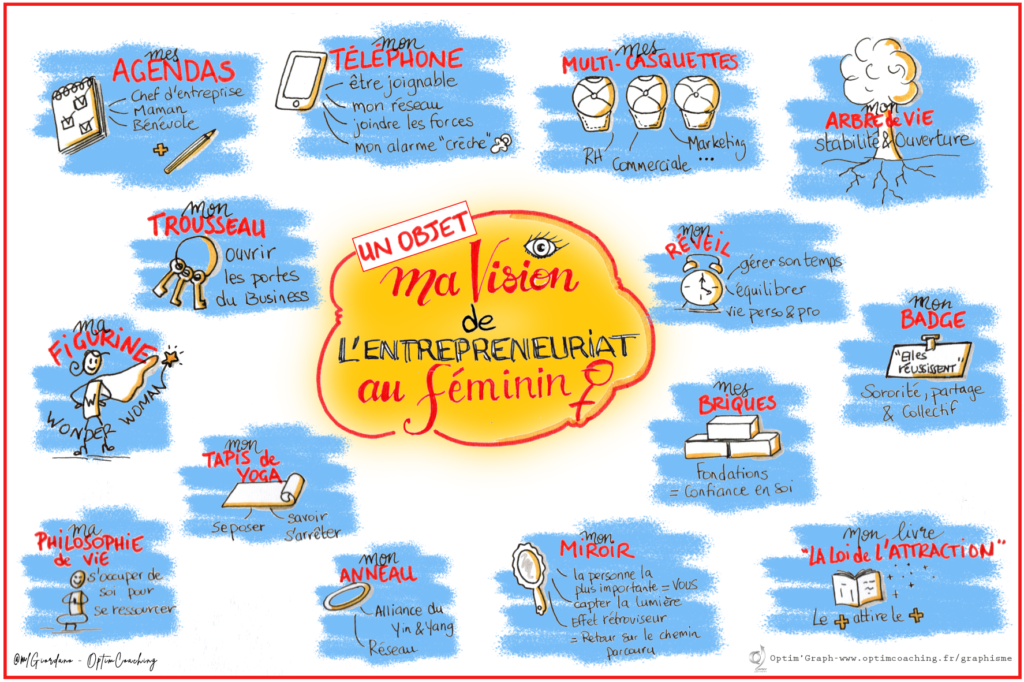 mes
AGENDAS
Chef d'entreprise
Maman
Bénévole
mon
TÉLÉPHONE
être joignable
mon réseau
joindre les forces
mon alarme "crèche"
mes
MULTI-CASQUETTES
RH
Commerciale
Marketing
...
mon
ARBRE de VIE
stabilité & Ouverture
mon
TROUSSEAU
Ouvrir
les portes
du Business
UN OBJET
ma Vision
de
L'ENTREPRENEURIAT
au féminin
mon
RÉVEIL
gérer son temps
équilibrer
vie perso & pro
mon
BADGE
"Elles
RÉUSSISSENT"
Sororité, partage
& Collectif
ma
FIGURINE
W
WONDER WOMAN
mes
BRIQUES
Fondations
= Confiance en Soi
mon
TAPIS de
YOGA
se poser
savoir
s'arrêter
ma
PHILOSOPHIE
de vie
s'occuper de
soi pour
se ressourcer
mon
ANNEAU
Alliance du
Yin & Yang
Réseau
mon
MIROIR
la personne la
plus importante = VOUS
capter la lumière
Effet rétroviseur
= Retour sur le chemin
parcouru
mon livre
"LA Loi de L'ATTRACTION"
Le + attire le +
@MGiordano - OptimCoaching
Optim'Graph-www.optimcoaching.fr/graphisme